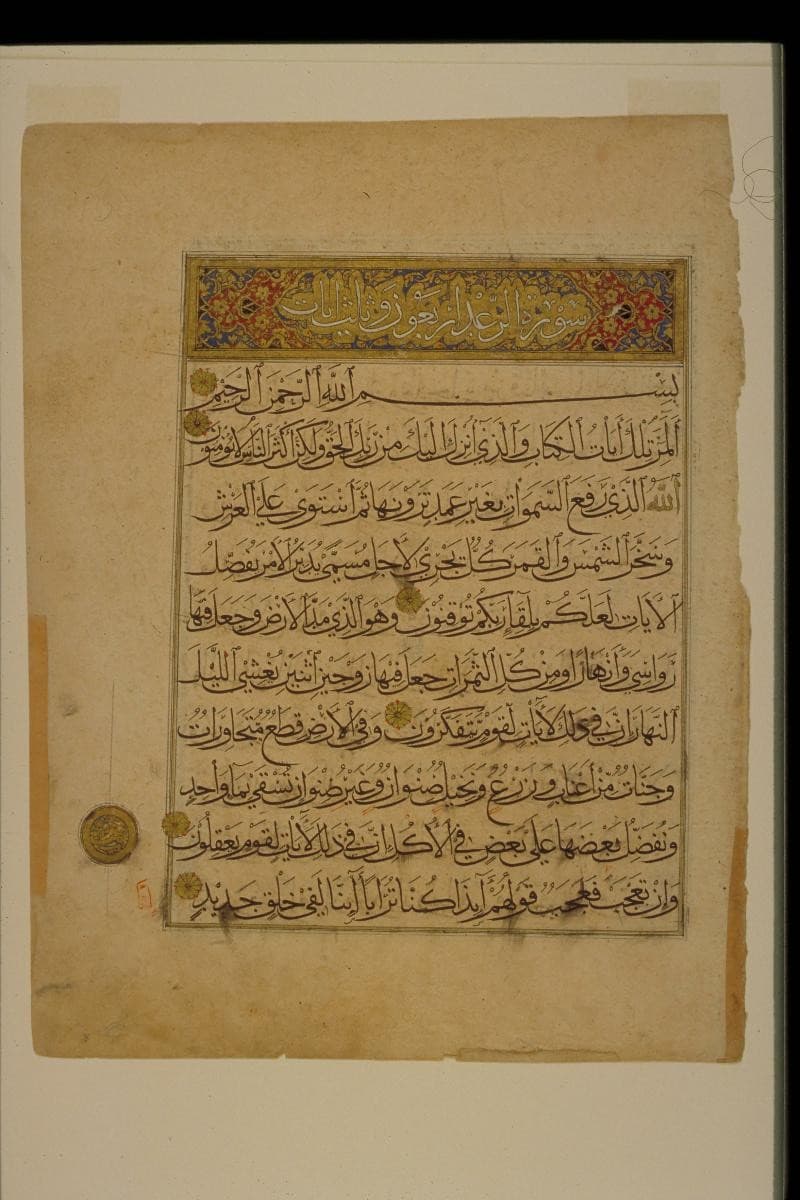 سورة الرعد اربعون وثلث ايات
بِسْمِ ٱللَّهِ ٱلرَّحْمَنِ ٱلرَّحِيمِ
الَمَر تِلْكَ ايَاتُ الْكِتَابِ وَالَّذِي أُنْزِلَ إِلَيْكَ مِنْ رَبِّكَ الْحَقُّ وَلَكِنَّ أَكْثَرَ النَّاسِ لَا يُؤْمِنُونَ
ٱللَّهُ الَّذِي رَفَعَ السَّمَوَاتِ بِغَيْرِ عَمَدٍ تَرَوْنَهَا ثُمَّ ٱسْتَوَىٰ عَلَى الْعَرْشِ
وَسَخَّرَ الشَّمْسَ وَالْقَمَرَ كُلٌّ يَجْرِي لِأَجَلٍ مُسَمًّى يُدَبِّرُ الْأَمْرَ يُفَصِّلُ
الْآيَاتِ لَعَلَّكُمْ بِلِقَاءِ رَبِّكُمْ تُوقِنُونَ وَهُوَ الَّذِي مَدَّ الْأَرْضَ وَجَعَلَ فِيهَا
رَوَاسِيَ وَأَنْهَارًا وَمِنْ كُلِّ الثَّمَرَاتِ جَعَلَ فِيهَا زَوْجَيْنِ ٱثْنَيْنِ يُغْشِي اللَّيْلَ
النَّهَارَ إِنَّ فِي ذَلِكَ لَآيَاتٍ لِقَوْمٍ يَتَفَكَّرُونَ وَفِي الْأَرْضِ قِطَعٌ مُتَجَاوِرَاتٌ
وَجَنَّاتٌ مِنْ أَعْنَابٍ وَزَرْعٌ وَنَخِيلٌ صُنْوَانٌ وَغَيْرُ صُنْوَانٍ تُسْقَىٰ بِمَاءٍ وَاحِدٍ
وَنُفَضِّلُ بَعْضَهَا عَلَىٰ بَعْضٍ فِي الْأُكُلِ إِنَّ فِي ذَلِكَ لَآيَاتٍ لِقَوْمٍ يَعْقِلُونَ
وَإِنْ تَعْجَبْ فَعَجَبٌ قَوْلُهُمْ أَيِذَا كُنَّا تُرَابًا أَيِنَّا لَفِي خَلْقٍ جَدِيدٍ